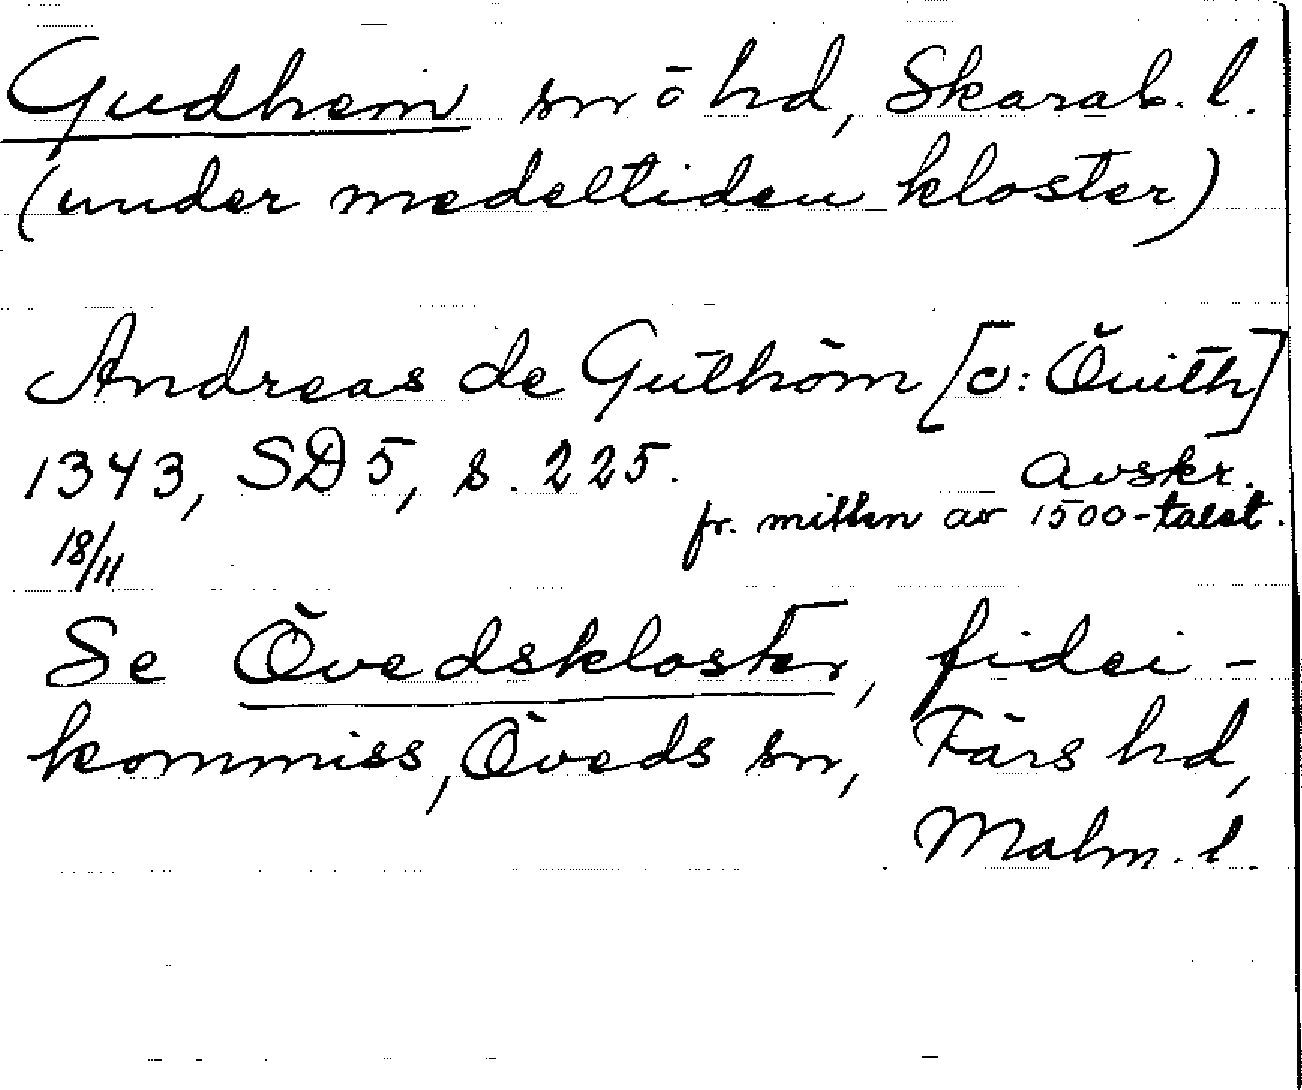 Gudhem sn o hd, Skarab. l.
(under medeltiden kloster)
Andreas de Guthöm [ɔ: Öuith]
1343, SD 5, s. 225. Avskr.
fr. mitten av 1500-talet.
18/11
Se Övedskloster, fidei-
kommiss, Öveds sn, Färs hd,
Malm. l.